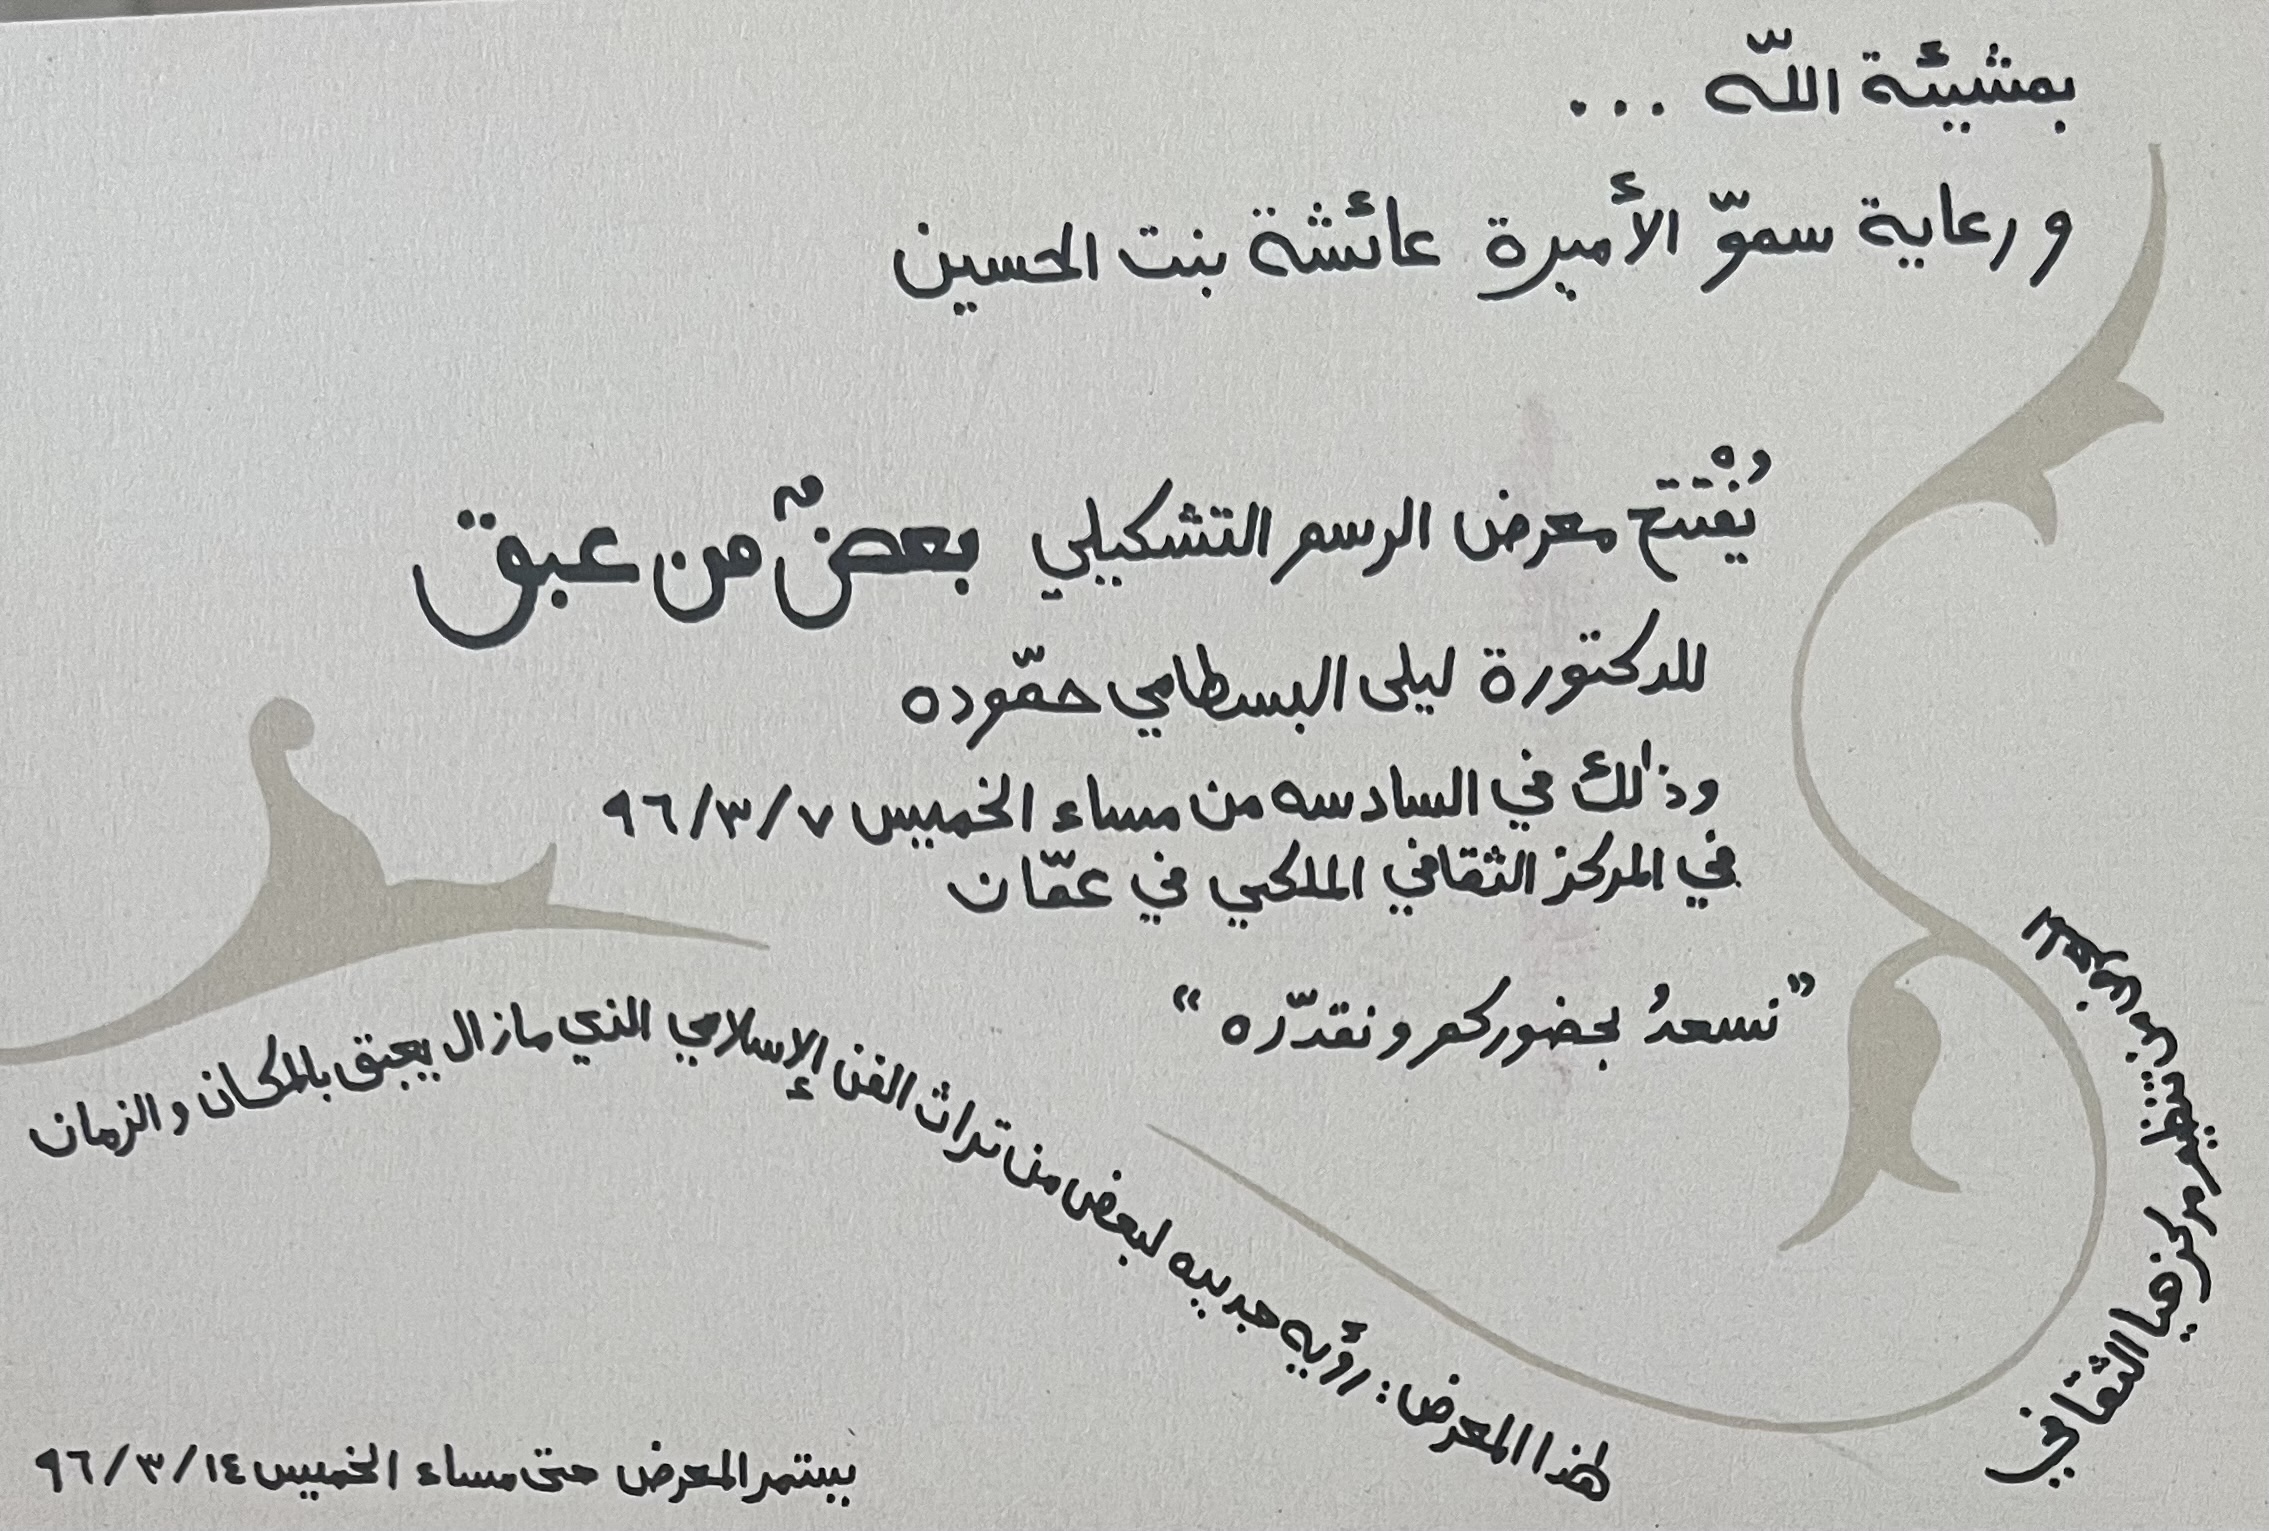 بمشيئة اللّه ...
و رعاية سموّ الأميرة عائشة بنت الحسين
يُفْتتح معرض الرسم التشكيلي بعضٌ من عبق
للدكتورة ليلى البسطامي حمّوده
وذٰلك في السادسه من مساء الخميس ٩٦/٣/٧
في المركز الثقافي الملكي في عمّان
"نسعدُ بحضوركم و نقدّره"
المعرض من تنظيم مركز هيا الثقافي
هٰذا المعرض: رؤيه جديده لبعض من تراث الفن الإسلامي الذي مازال يعبق بالمكان والزمان
يستمر المعرض حتى مساء الخميس ٩٦/٣/١٤